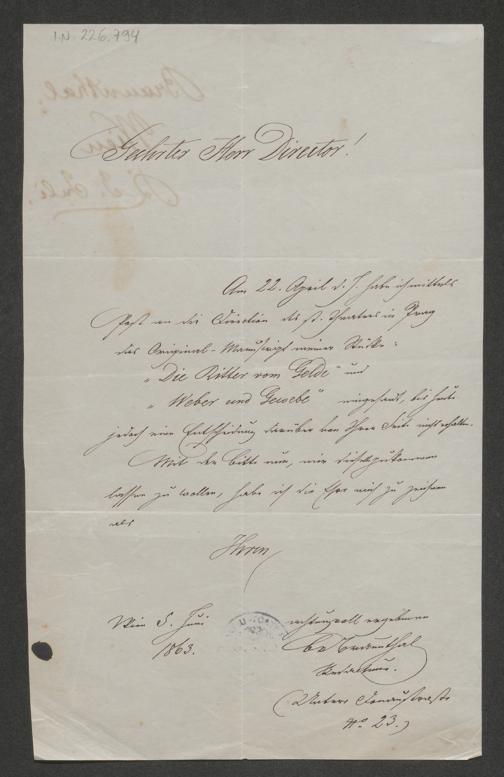 I.N. 226.794
Braunthal,
Wien
Geehrter Herr Director!
Am 22. April d. J. habe ich mittels
Post an die Direction des st. Theaters in Prag
das Original-Manuscript meiner Stücke:
„Die Ritter vom Gelde" und
„Weber und Gewebe" eingesandt, bis heute
jedoch eine Entscheidung darüber von Ihrer Seite nicht erhalten.
Mit der Bitte nun, mir dieselbe zukommen
lassen zu wollen, habe ich die Ehre mich zu zeichnen
als
Ihren
Wien 5. Juni
1863.
achtungsvoll ergebenen
Braunthal
Redacteur.
(Untere Donaustraße
No. 23.)